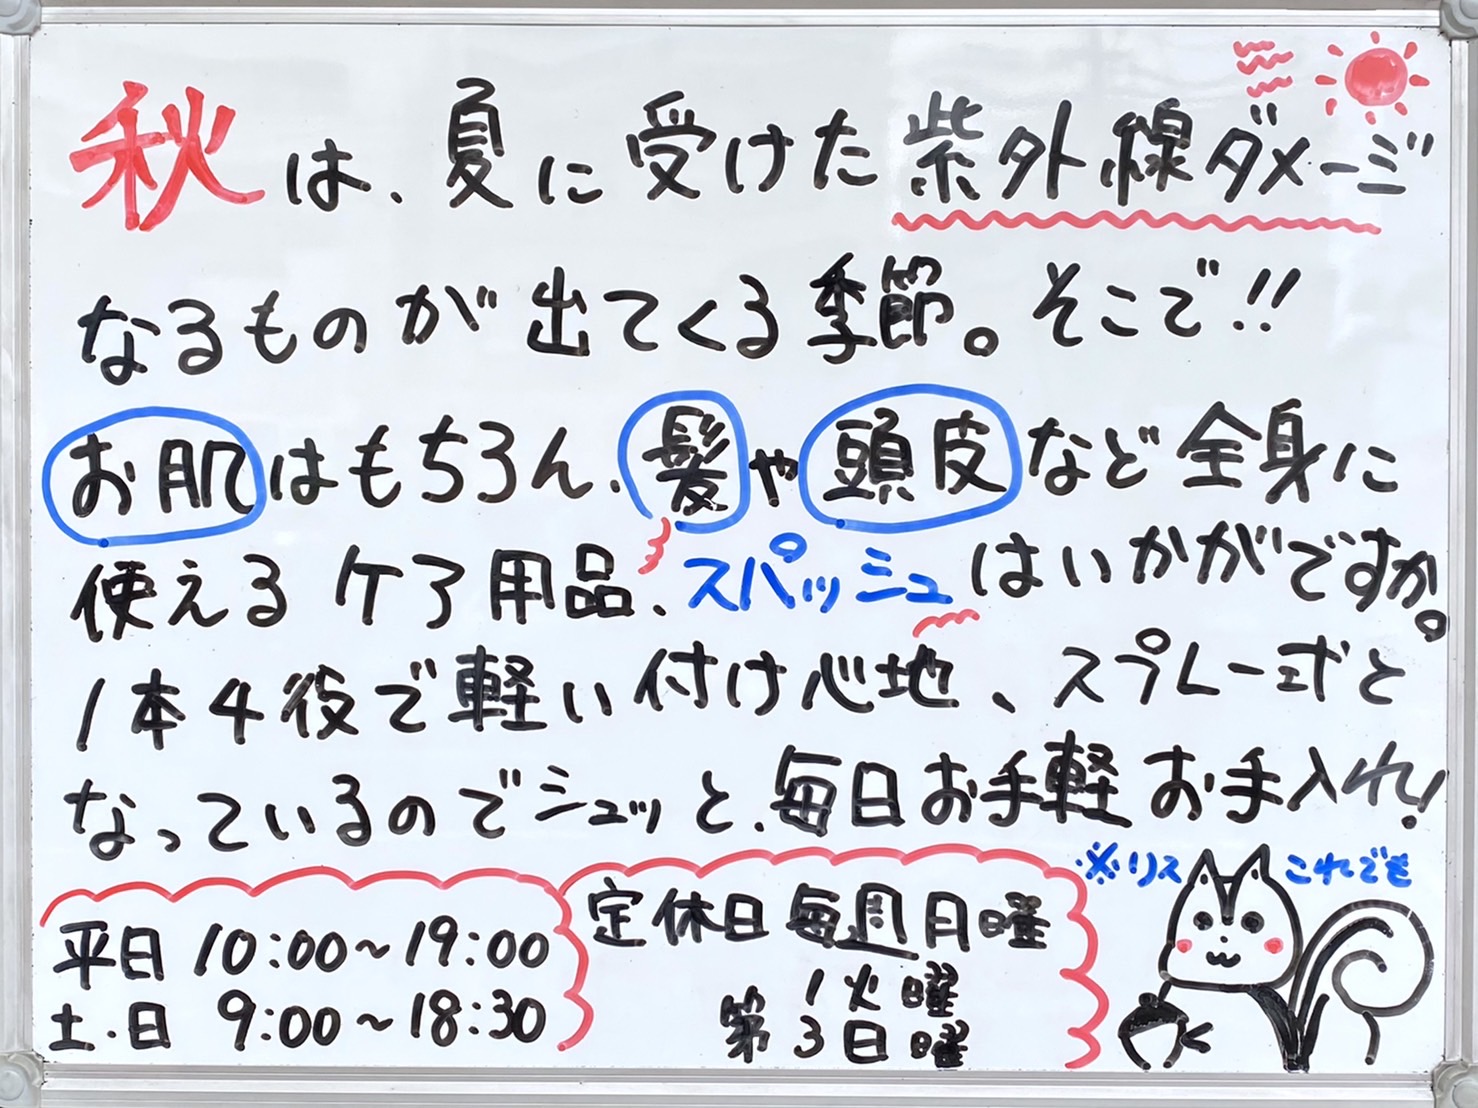 秋は、夏に受けた紫外線ダメージ
なるものが出てくる季節。そこで!!
お肌はもちろん、髪や頭皮など全身に
使えるケア用品、スパッシュはいかがですか。
1本4役で軽い付け心地、スプレー式と
なっているのでシュッと、毎日お手軽お手入れ!
※リス これでも
平日 10:00~19:00
土・日 9:00~18:30
定休日 毎週月曜
第1火曜
3日曜